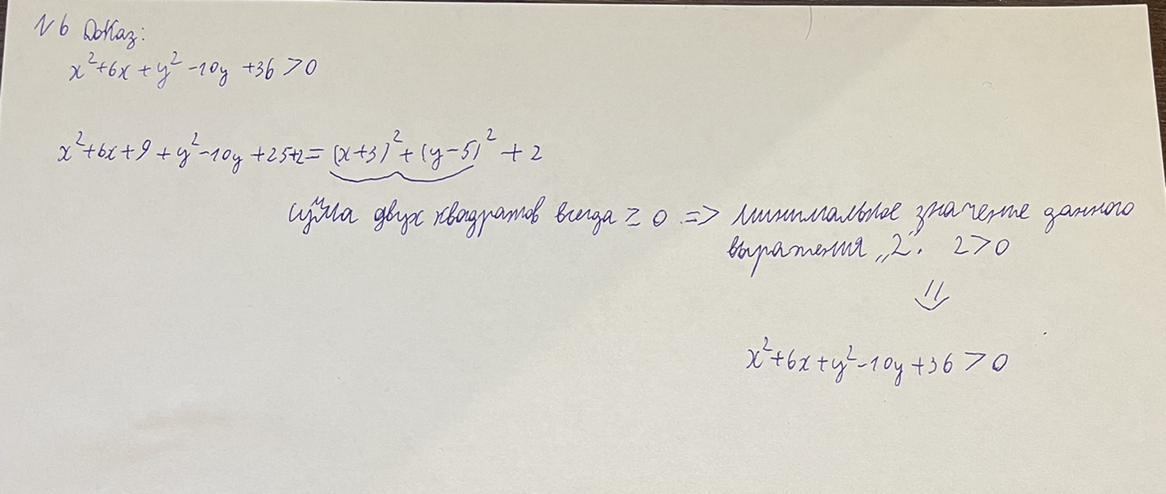 N6 Доказ:
x²+6x+y²-10y+36>0
x²+6x+9+y²-10y+25+2=(x+3)²+(y-5)²+2
сумма двух квадратов всегда ≥ 0 => минимальное значение данного
выражения „2". 2>0
⇓
x²+6x+y²-10y+36>0